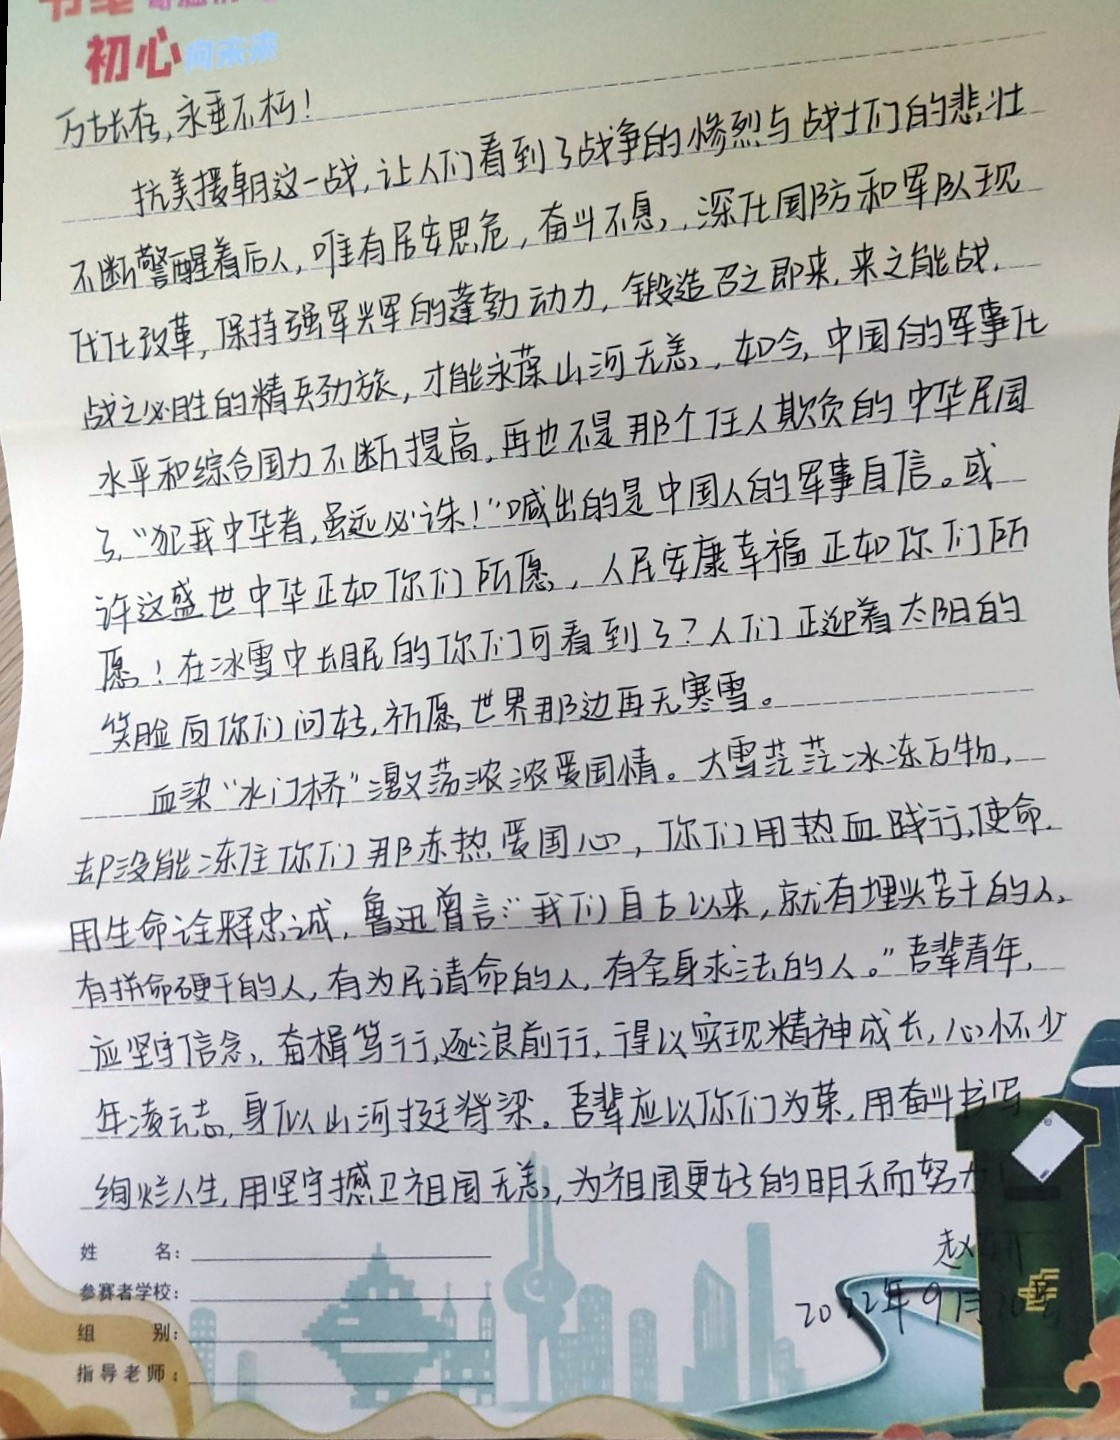 初心 向未来
万古长存,永垂不朽!
抗美援朝这一战,让人们看到了战争的惨烈与战士们的悲壮
不断警醒着后人,唯有居安思危,奋斗不息,深化国防和军队现
代化改革,保持强军兴军的蓬勃动力,锻造召之即来,来之能战,
战之必胜的精兵劲旅,才能永葆山河无恙,如今,中国的军事化
水平和综合国力不断提高,再也不是那个任人欺负的中华民国
了,“犯我中华者,虽远必诛!”喊出的是中国人的军事自信。或
许这盛世中华正如你们所愿,人民安康幸福正如你们所
愿!在冰雪中长眠的你们可看到了?人们正迎着太阳的
笑脸向你们问好,祈愿世界那边再无寒雪。
血染“水门桥”激荡浓浓爱国情。大雪茫茫冰冻万物,
却没能冻住你们那赤热爱国心,你们用热血践行使命,
用生命诠释忠诚,鲁迅曾言:“我们自古以来,就有埋头苦干的人,
有拼命硬干的人,有为民请命的人,有舍身求法的人。”吾辈青年,
应坚守信念,奋楫笃行,逐浪前行,得以实现精神成长,心怀少
年凌云志,身似山河挺脊梁。吾辈应以你们为荣,用奋斗书写
绚烂人生,用坚守撼卫祖国无恙,为祖国更好的明天而努力!
姓 名:
赵
参赛者学校:
2022年9月20号
组 别:
指导老师: